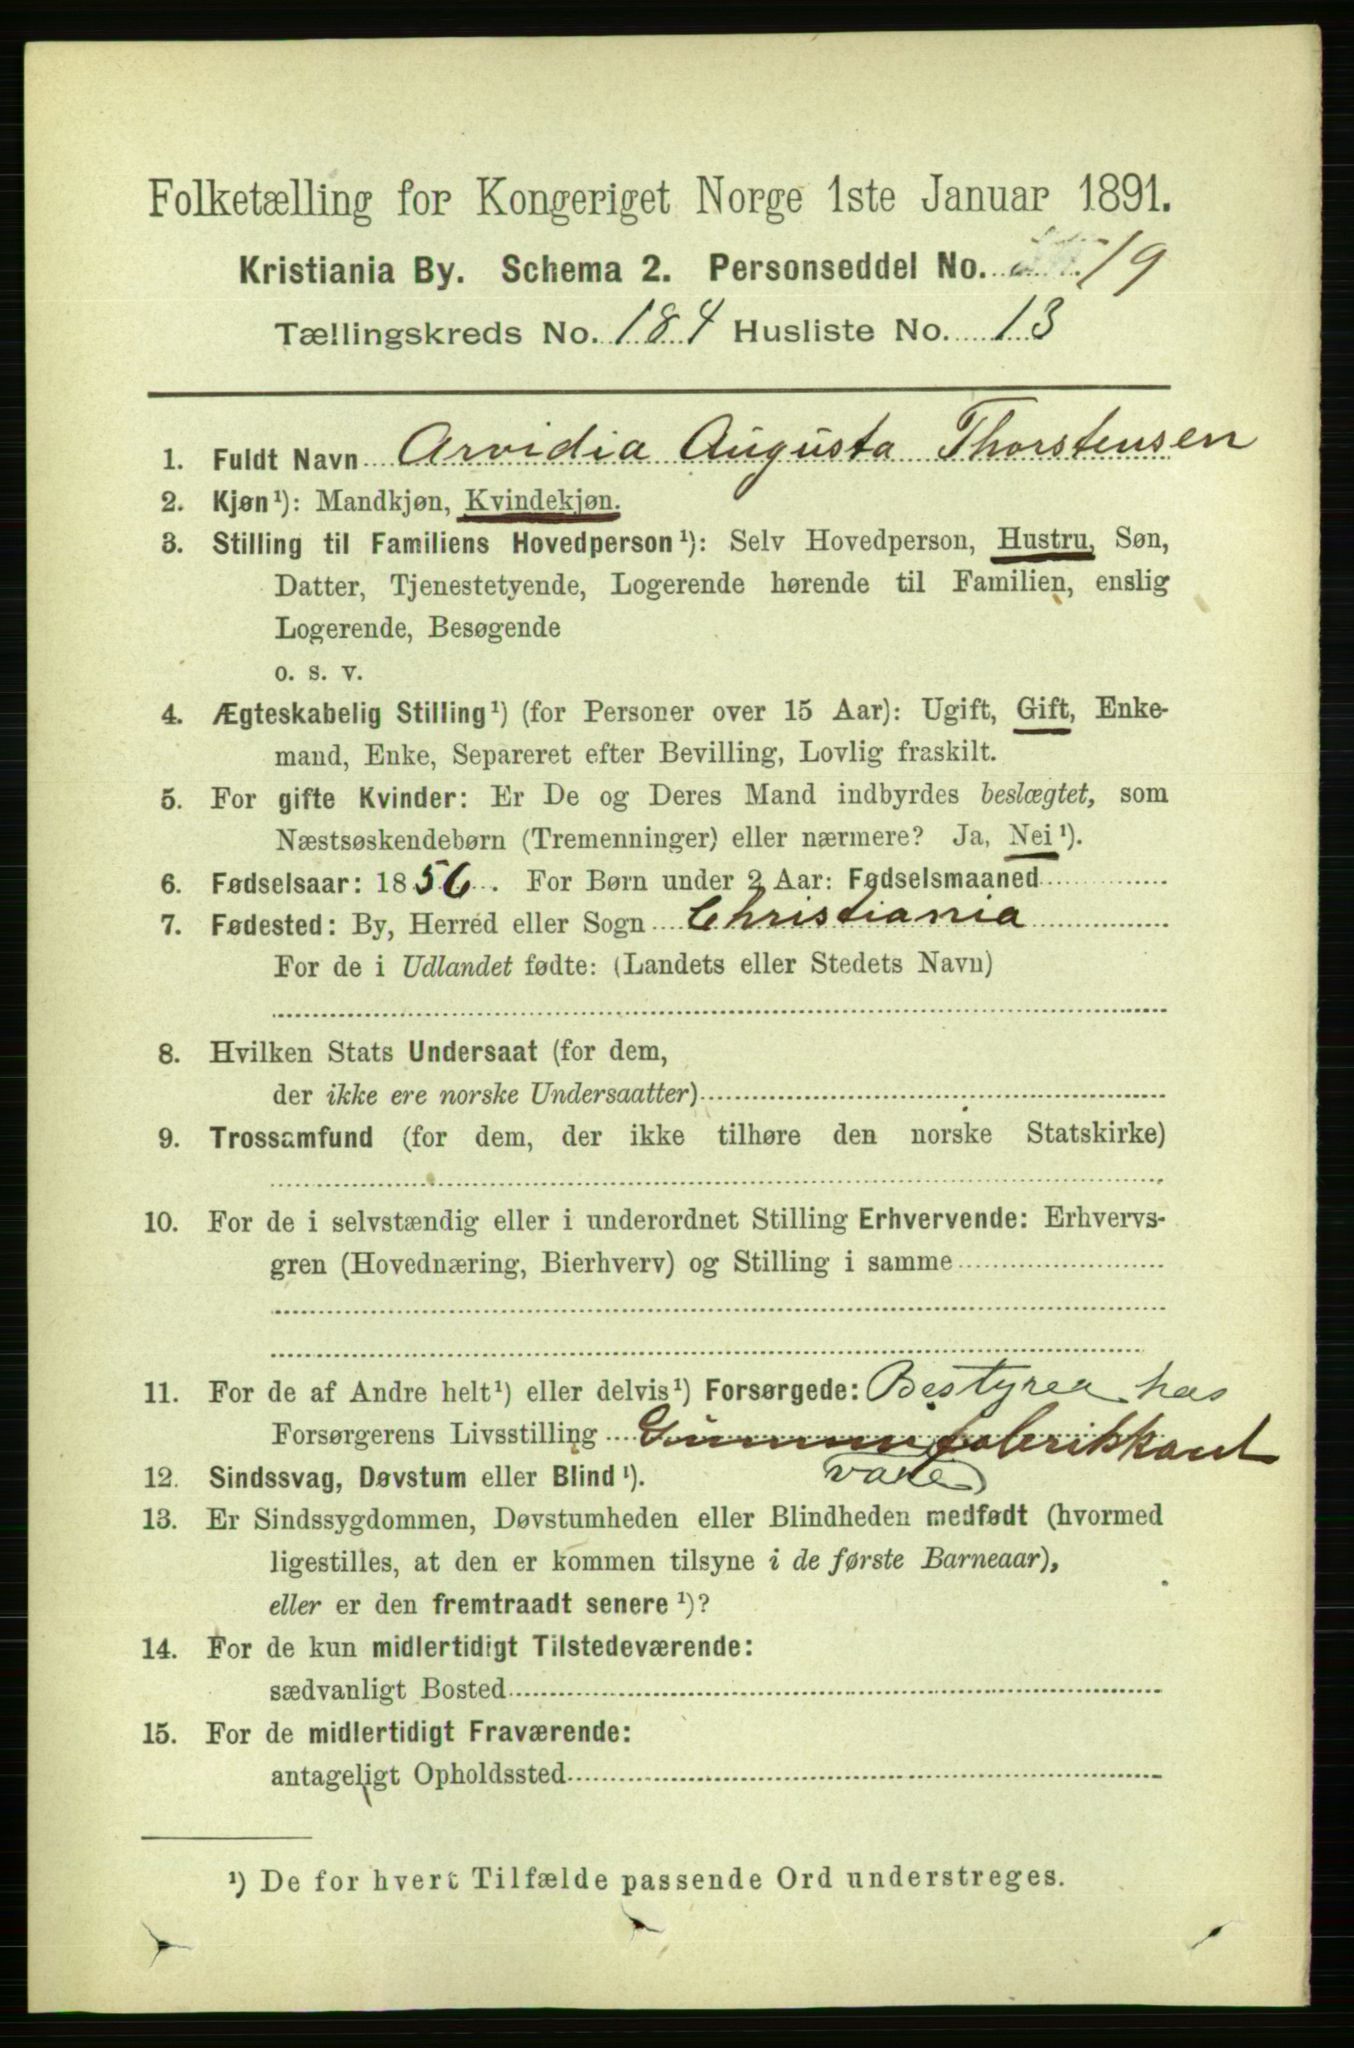 Folketælling for Kongeriget Norge 1ste Januar 1891.
Kristiania By. Schema 2. Personseddel No. 19
Tællingskreds No. 184 Husliste No. 13
1. Fuldt Navn Arvidia Augusta Thorstensen
2. Kjøn¹): Mandkjøn, Kvindekjøn.
3. Stilling til Familiens Hovedperson¹): Selv Hovedperson, Hustru, Søn,
Datter, Tjenestetyende, Logerende hørende til Familien, enslig
Logerende, Besøgende
o. s. v.
4. Ægteskabelig Stilling¹) (for Personer over 15 Aar): Ugift, Gift, Enke-
mand, Enke, Separeret efter Bevilling, Lovlig fraskilt.
5. For gifte Kvinder: Er De og Deres Mand indbyrdes beslægtet, som
Næstsøskendebørn (Tremenninger) eller nærmere? Ja, Nei¹).
6. Fødselsaar: 1856. For Børn under 2 Aar: Fødselsmaaned
7. Fødested: By, Herred eller Sogn Christiania
For de i Udlandet fødte: (Landets eller Stedets Navn)
8. Hvilken Stats Undersaat (for dem,
der ikke ere norske Undersaatter)
9. Trossamfund (for dem, der ikke tilhøre den norske Statskirke)
10. For de i selvstændig eller i underordnet Stilling Erhvervende: Erhvervs-
gren (Hovednæring, Bierhverv) og Stilling i samme
11. For de af Andre helt¹) eller delvis¹) Forsørgede: Bestyrer hos
Forsørgerens Livsstilling Gummifabrikkant
12. Sindssvag, Døvstum eller Blind¹). vare
13. Er Sindssygdommen, Døvstumheden eller Blindheden medfødt (hvormed
ligestilles, at den er kommen tilsyne i de første Barneaar),
eller er den fremtraadt senere¹)?
14. For de kun midlertidigt Tilstedeværende:
sædvanligt Bosted
15. For de midlertidigt Fraværende:
antageligt Opholdssted
¹) De for hvert Tilfælde passende Ord understreges.